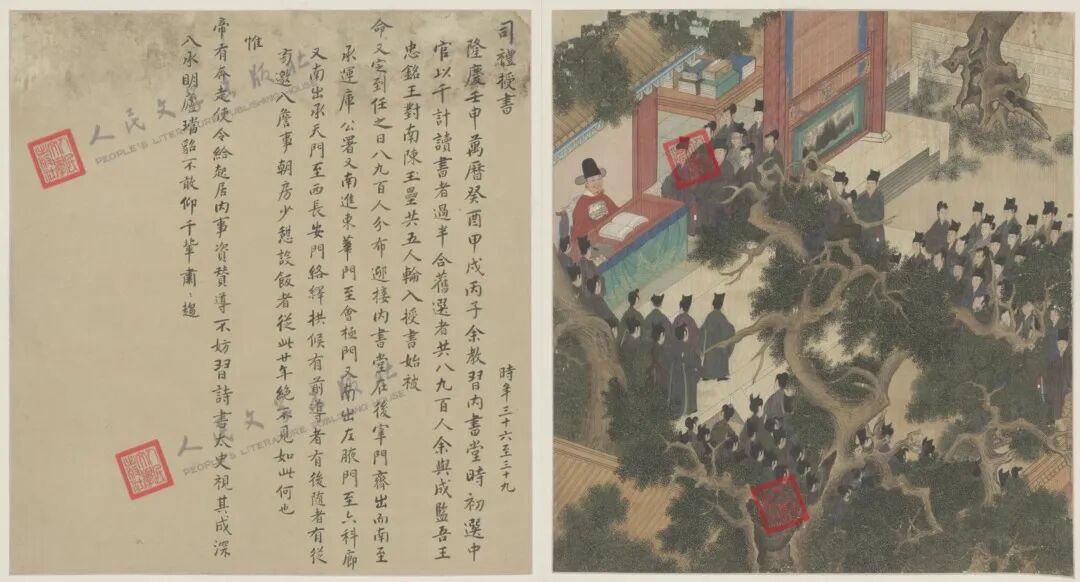 司禮授書
時年三十六至三十九
隆慶壬申萬曆癸酉甲戌丙子余教習內書堂時初選中
官以千計讀書者過半合舊選者共八九百人余與成監吾王
忠銘王對南陳玉壘共五人輪入授書始被
命又定到任之日八九百人分布迎接內書堂在後宰門齊出而南至
承運庫公署又南進東華門至會極門又南出左腋門至六科廊
又南出承天門至西長安門絡繹拱候有前導者有後隨者有從
旁邀入詹事朝房少憩設飯者從此廿年絕不見如此何也
惟
帝有奔走使令給起居內事資贊導不妨習詩書太史視其成深
入承明廬璫貂不敢仰千輩肅〻趨
人民文學出版社
PEOPLE'S LITERATURE PUBLISHING HOUSE
人民文學出版社
PEOPLE'S LITERATURE PUBLISHING HOUSE